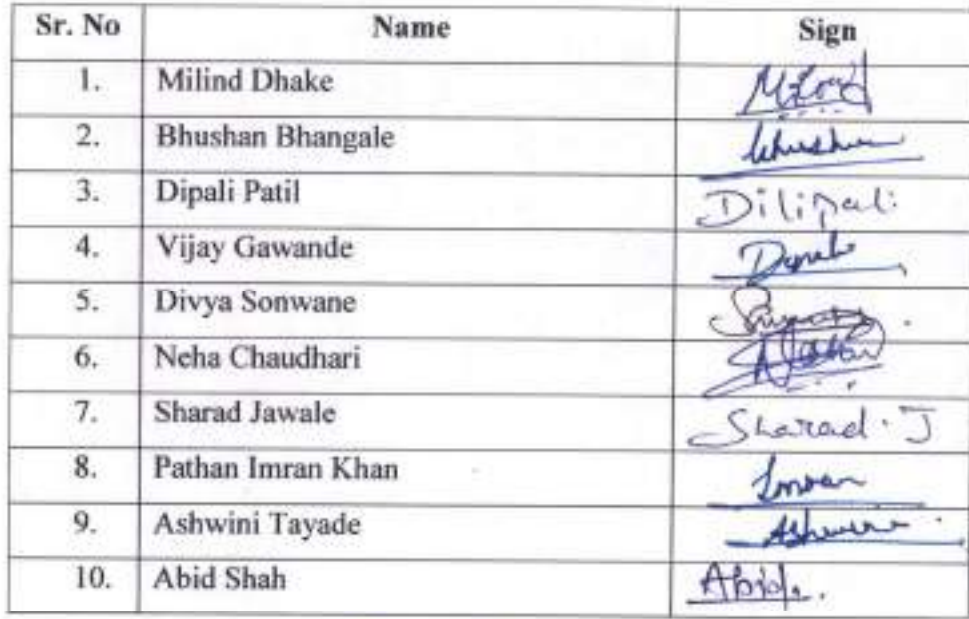 Sr. No Name Sign
1. Milind Dhake Milind
2. Bhushan Bhangale Bhushan
3. Dipali Patil Dilipali
4. Vijay Gawande
5. Divya Sonwane
6. Neha Chaudhari
7. Sharad Jawale Sharad. J
8. Pathan Imran Khan Imran
9. Ashwini Tayade Ashwini
10. Abid Shah Abid.